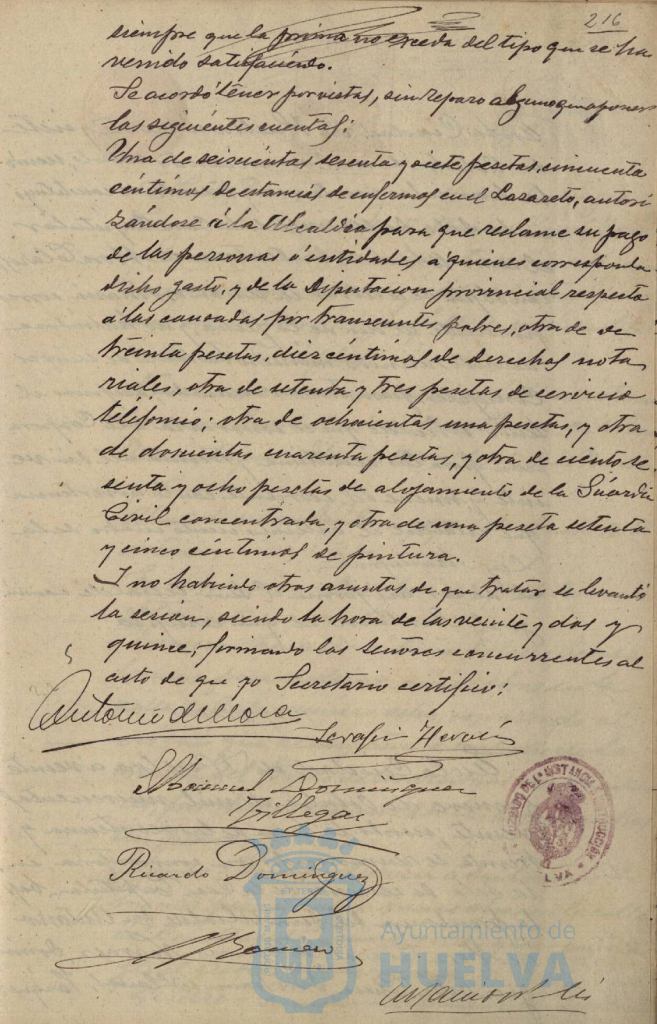 216
siempre que la prima no exceda del tipo que se ha
venido satisfaciendo.
Se acordó tener por vistas, sin reparo alguno que oponer
las siguientes cuentas:
Una de seiscientas sesenta y siete pesetas, cincuenta
céntimos de estancias de enfermos en el Lazareto, autori
zándose á la Alcaldía para que reclame su pago
de las personas ó entidades á quienes corresponda
dicho gasto, y de la Diputacion provincial respecto
á las causadas por transeuntes pobres, otra de
treinta pesetas, diez céntimos de derechos nota
riales, otra de setenta y tres pesetas de servicio
telefónico; otra de ochocientas una pesetas, y otra
de doscientas cuarenta pesetas, y otra de ciento se
senta y ocho pesetas de alojamiento de la Guardia
Civil concentrada, y otra de una peseta setenta
y cinco céntimos de pintura.
I no habiendo otros asuntos de que tratar se levantó
la sesion, siendo la hora de las veinte y dos y
quince, firmando los señores concurrentes al
acto de que yo Secretario certifico:
Antonio de Mora
Serafin
Manuel Dominguez
Villegas
Ricardo Dominguez
Romero
Ayuntamiento de
HUELVA